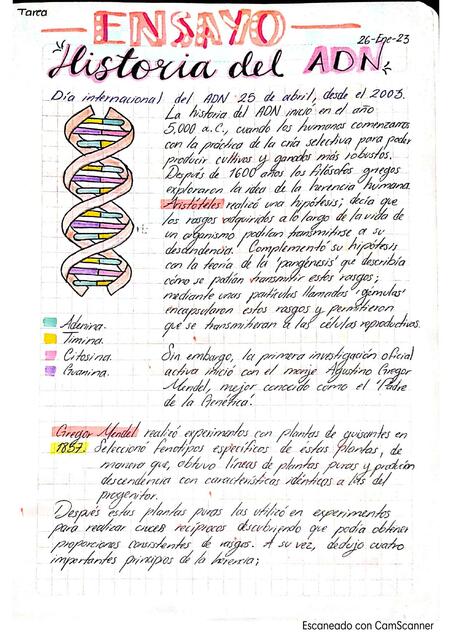 Tarea
ENSAYO
26-Ene-23
Historia del ADN
Día internacional del ADN 25 de abril, desde el 2003.
La historia del ADN inició en el año
5,000 a.C., cuando los humanos comenzaron
con la práctica de la cría selectiva para poder
producir cultivos y ganados más robustos.
Después de 1600 años los filósofos griegos
exploraron la idea de la herencia humana.
Aristóteles realizó una hipótesis; decía que
los rasgos adquiridos a lo largo de la vida de
un organismo podían transmitirse a su
descendencia. Complementó su hipótesis
con la teoría de la 'pangénesis' que describía
cómo se podían transmitir estos rasgos;
mediante unas partículas llamadas 'gémulas'
encapsularon estos rasgos y permitieron
que se transmitieran a las células reproductivas.
Adenina.
Timina.
Citosina.
Guanina.
Sin embargo, la primera investigación oficial
activa inició con el monje Agustino Gregor
Mendel, mejor conocido como el 'Padre
de la Genética'.
Gregor Mendel realizó experimentos con plantas de guisantes en
1857. Seleccionó fenotipos específicos de estas plantas, de
manera que, obtuvo líneas de plantas puras y producían
descendencia con características idénticas a las del
progenitor.
Después estas plantas puras las utilizó en experimentos
para realizar cruces recíprocos descubriendo que podía obtener
proporciones consistentes de rasgos. A su vez, dedujo cuatro
importantes principios de la herencia;
Escaneado con CamScanner